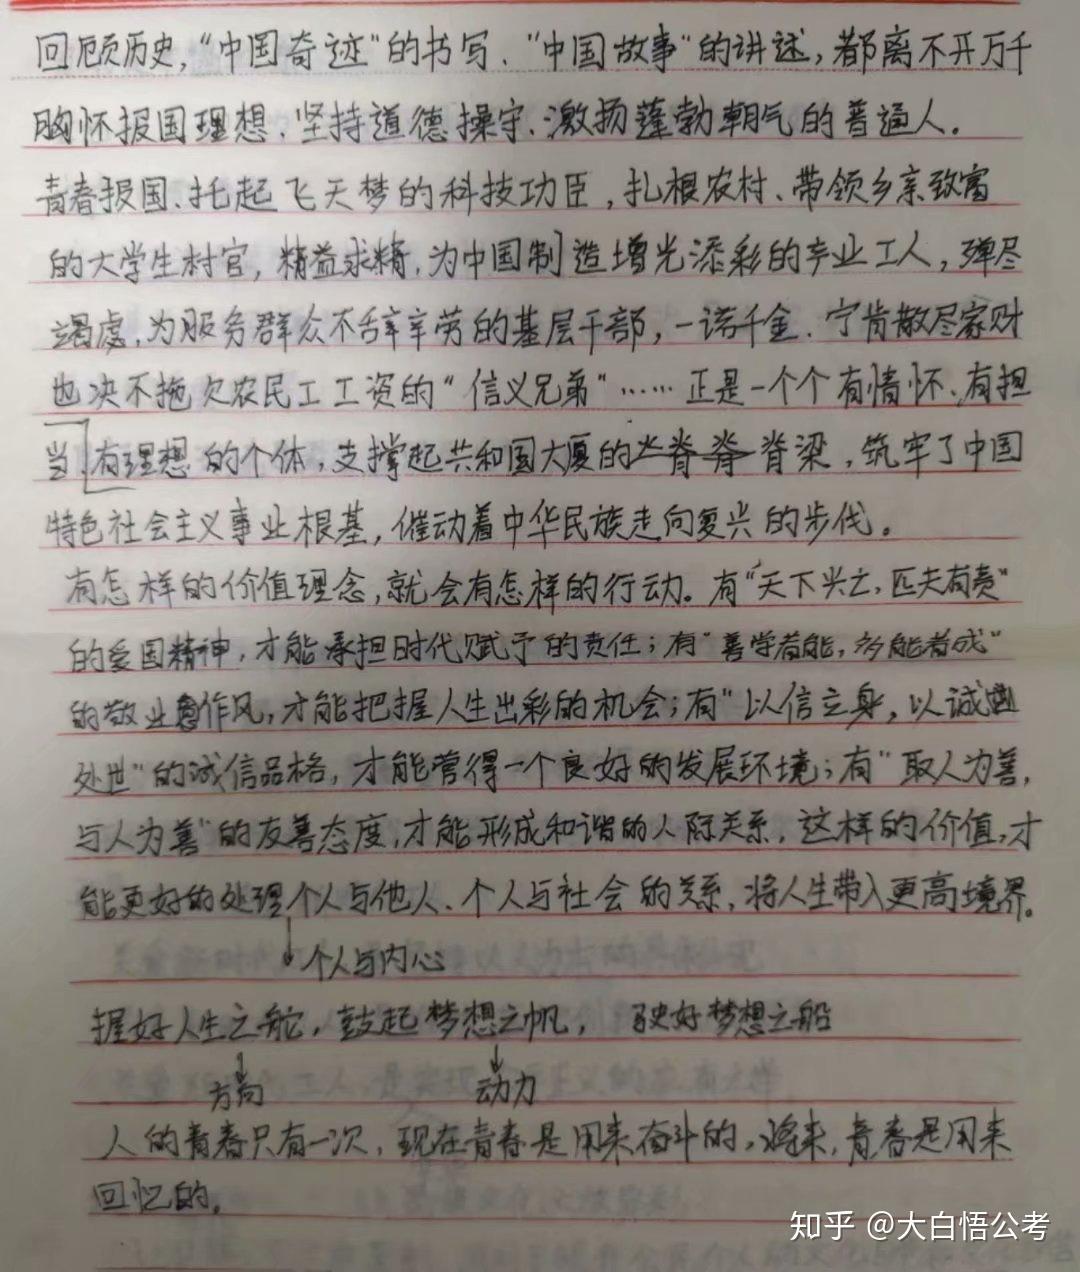 回顾历史，“中国奇迹”的书写、“中国故事”的讲述，都离不开万千
胸怀报国理想、坚持道德操守、激扬蓬勃朝气的普通人。
青春报国、托起飞天梦的科技功臣，扎根农村、带领乡亲致富
的大学生村官，精益求精，为中国制造增光添彩的产业工人，殚尽
竭虑，为服务群众不辞辛劳的基层干部，一诺千金、宁肯散尽家财
也决不拖欠农民工工资的“信义兄弟”……正是一个个有情怀、有担
当、有理想的个体，支撑起共和国大厦的脊梁，筑牢了中国
特色社会主义事业根基，催动着中华民族走向复兴的步伐。
有怎样的价值理念，就会有怎样的行动。有“天下兴亡，匹夫有责”
的爱国精神，才能承担时代赋予的责任；有“善学者能，多能者成”
的敬业作风，才能把握人生出彩的机会；有“以信立身，以诚
处世”的诚信品格，才能营得一个良好的发展环境；有“取人为善，
与人为善”的友善态度，才能形成和谐的人际关系，这样的价值，才
能更好的处理个人与他人、个人与社会的关系，将人生带入更高境界。
个人与内心
握好人生之舵，鼓起梦想之帆，驶好梦想之船
方向 动力
人的青春只有一次，现在青春是用来奋斗的，将来，青春是用来
回忆的。
知乎 @大白悟公考